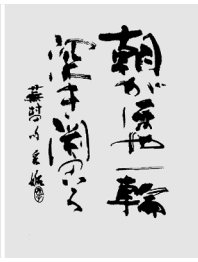 朝がほや一輪
深き淵のいろ
蕪村句